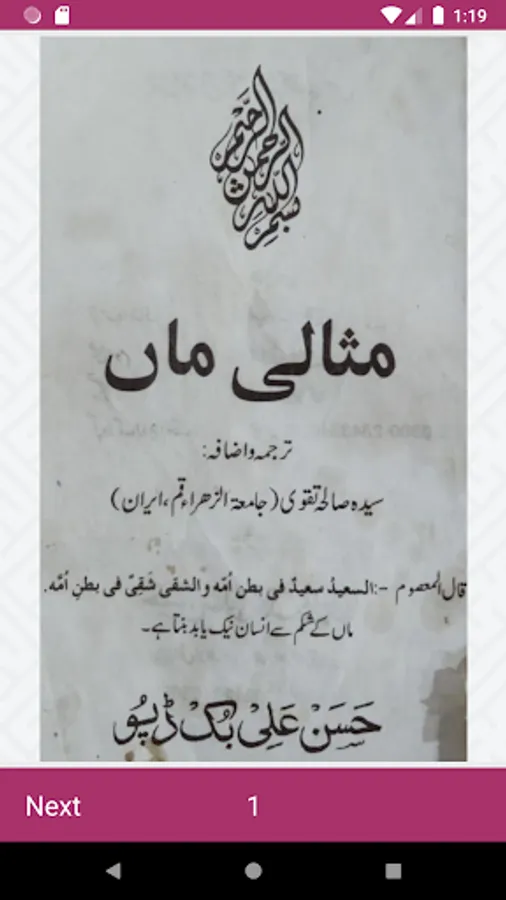 1:19
بسم الله الرحمن الرحيم
مثالی ماں
ترجمہ واضافہ:
سیدہ صالحہ تقوی (جامعۃ الزھراء قم، ایران)
قال المعصوم -: السعیدُ سعیدٌ فی بطن اُمّه و الشقی شَقِیٌ فی بطنِ اُمَّه.
ماں کے شکم سے انسان نیک یا بد بنتا ہے۔
حَسَنْ عَلِیْ بُکْ ڈپُو
Next 1